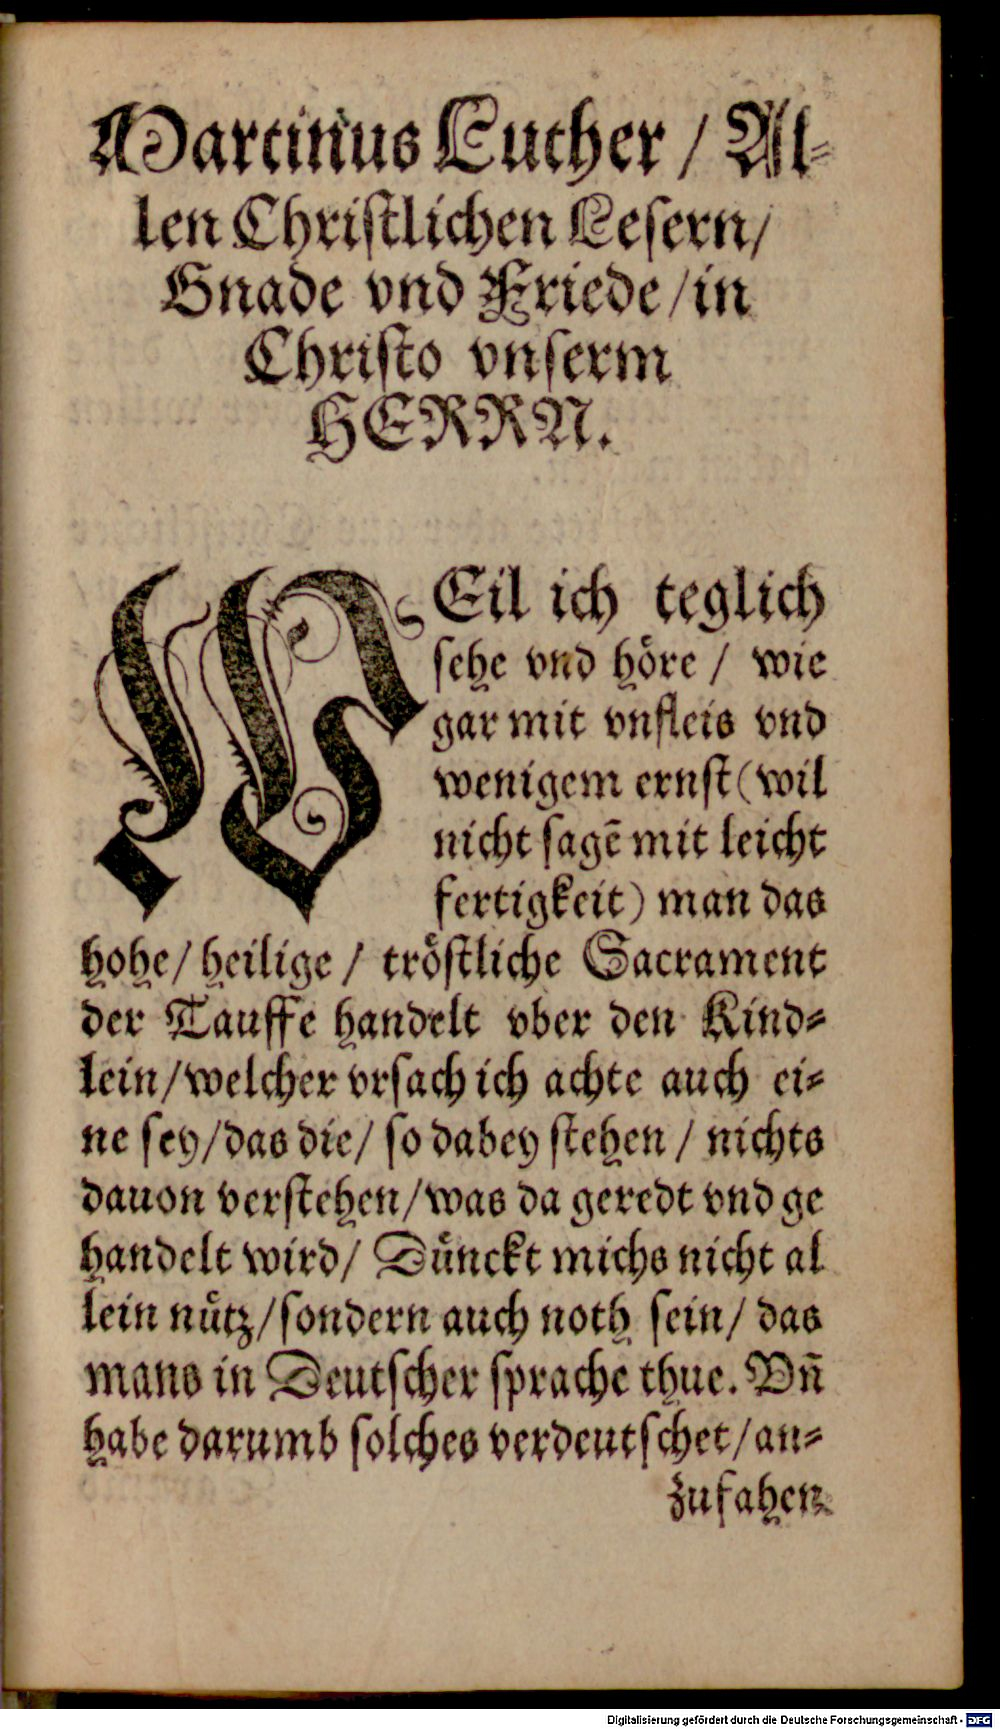 Martinus Luther / Al-
len Chriſtlichen Leſern/
Gnade vnd Friede/in
Chriſto vnſerm
HERRN.
WEil ich teglich
ſehe vnd hoͤre / wie
gar mit vnfleis vnd
wenigem ernſt(wil
nicht ſagē mit leicht
fertigkeit) man das
hohe/ heilige / troͤſtliche Sacrament
der Tauffe handelt vber den Kind-
lein/welcher vrſach ich achte auch ei-
ne ſey/das die/ ſo dabey ſtehen / nichts
dauon verſtehen/was da geredt vnd ge
handelt wird/ Duͤnckt michs nicht al
lein nuͤtz/ſondern auch noth ſein/ das
mans in Deutſcher ſprache thue. Vn̄
habe darumb ſolches verdeutſchet/an-
zufahen
Digitalisierung gefördert durch die Deutsche Forschungsgemeinschaft - DFG